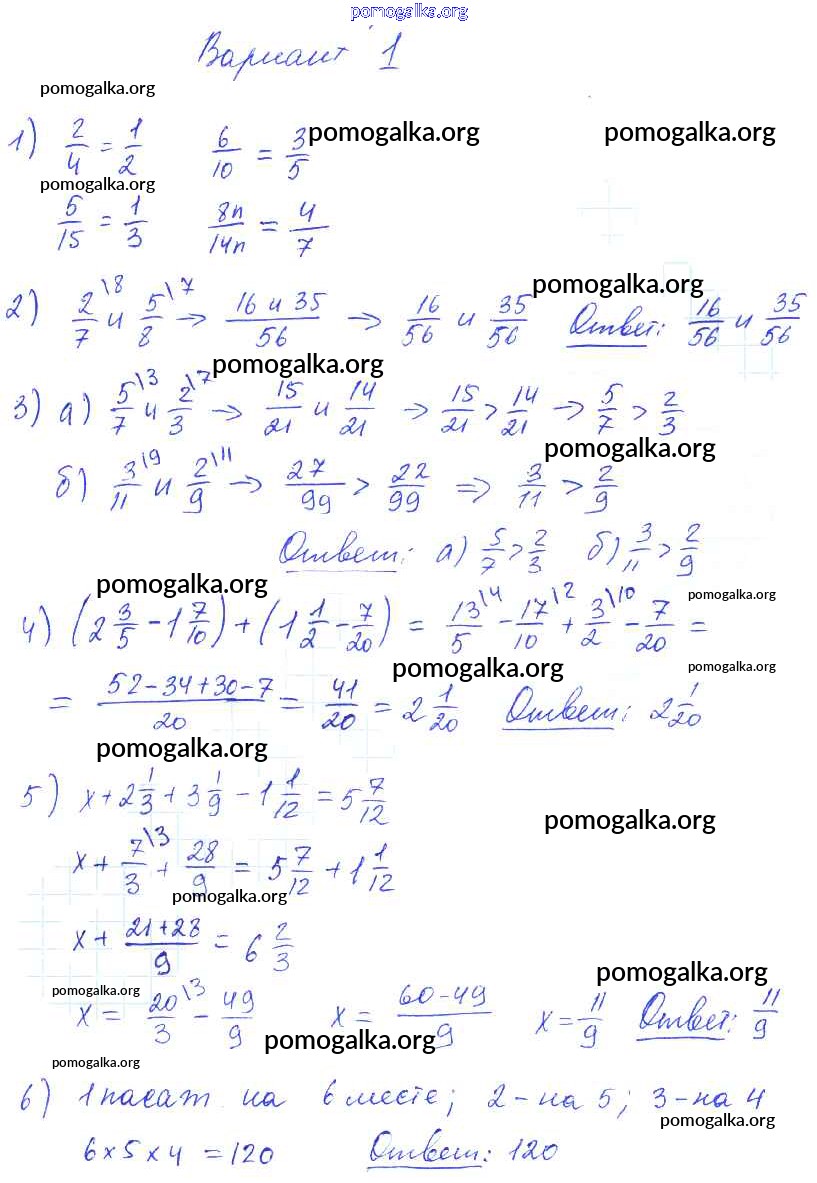 pomogalka.org
Вариант 1
pomogalka.org
1) 2/4 = 1/2 6/10 = 3/5 pomogalka.org pomogalka.org
pomogalka.org
5/15 = 1/3 8n/14n = 4/7
pomogalka.org
2) 2/7\8 и 5/8\7 → 16 и 35/56 → 16/56 и 35/56 Ответ: 16/56 и 35/56
pomogalka.org
3) а) 5/7\3 и 2/3\7 → 15/21 и 14/21 → 15/21 > 14/21 → 5/7 > 2/3
pomogalka.org
б) 3/11\9 и 2/9\11 → 27/99 > 22/99 ⇒ 3/11 > 2/9
Ответ: а) 5/7 > 2/3 б) 3/11 > 2/9
pomogalka.org pomogalka.org
4) (2 3/5 - 1 7/10) + (1 1/2 - 7/20) = 13/5\4 - 17/10\2 + 3/2\10 - 7/20 =
pomogalka.org pomogalka.org
= 52-34+30-7/20 = 41/20 = 2 1/20 Ответ: 2 1/20
pomogalka.org
5) x + 2 1/3 + 3 1/9 - 1 1/12 = 5 7/12
pomogalka.org
x + 7/3\3 + 28/9 = 5 7/12 + 1 1/12
pomogalka.org
x + 21+28/9 = 6 2/3
pomogalka.org pomogalka.org
x = 20/3\3 - 49/9 x = 60-49/9 x = 11/9 Ответ: 11/9
pomogalka.org
pomogalka.org
6) 1 пасат на 6 месте; 2 - на 5; 3 - на 4
pomogalka.org
6 x 5 x 4 = 120 Ответ: 120